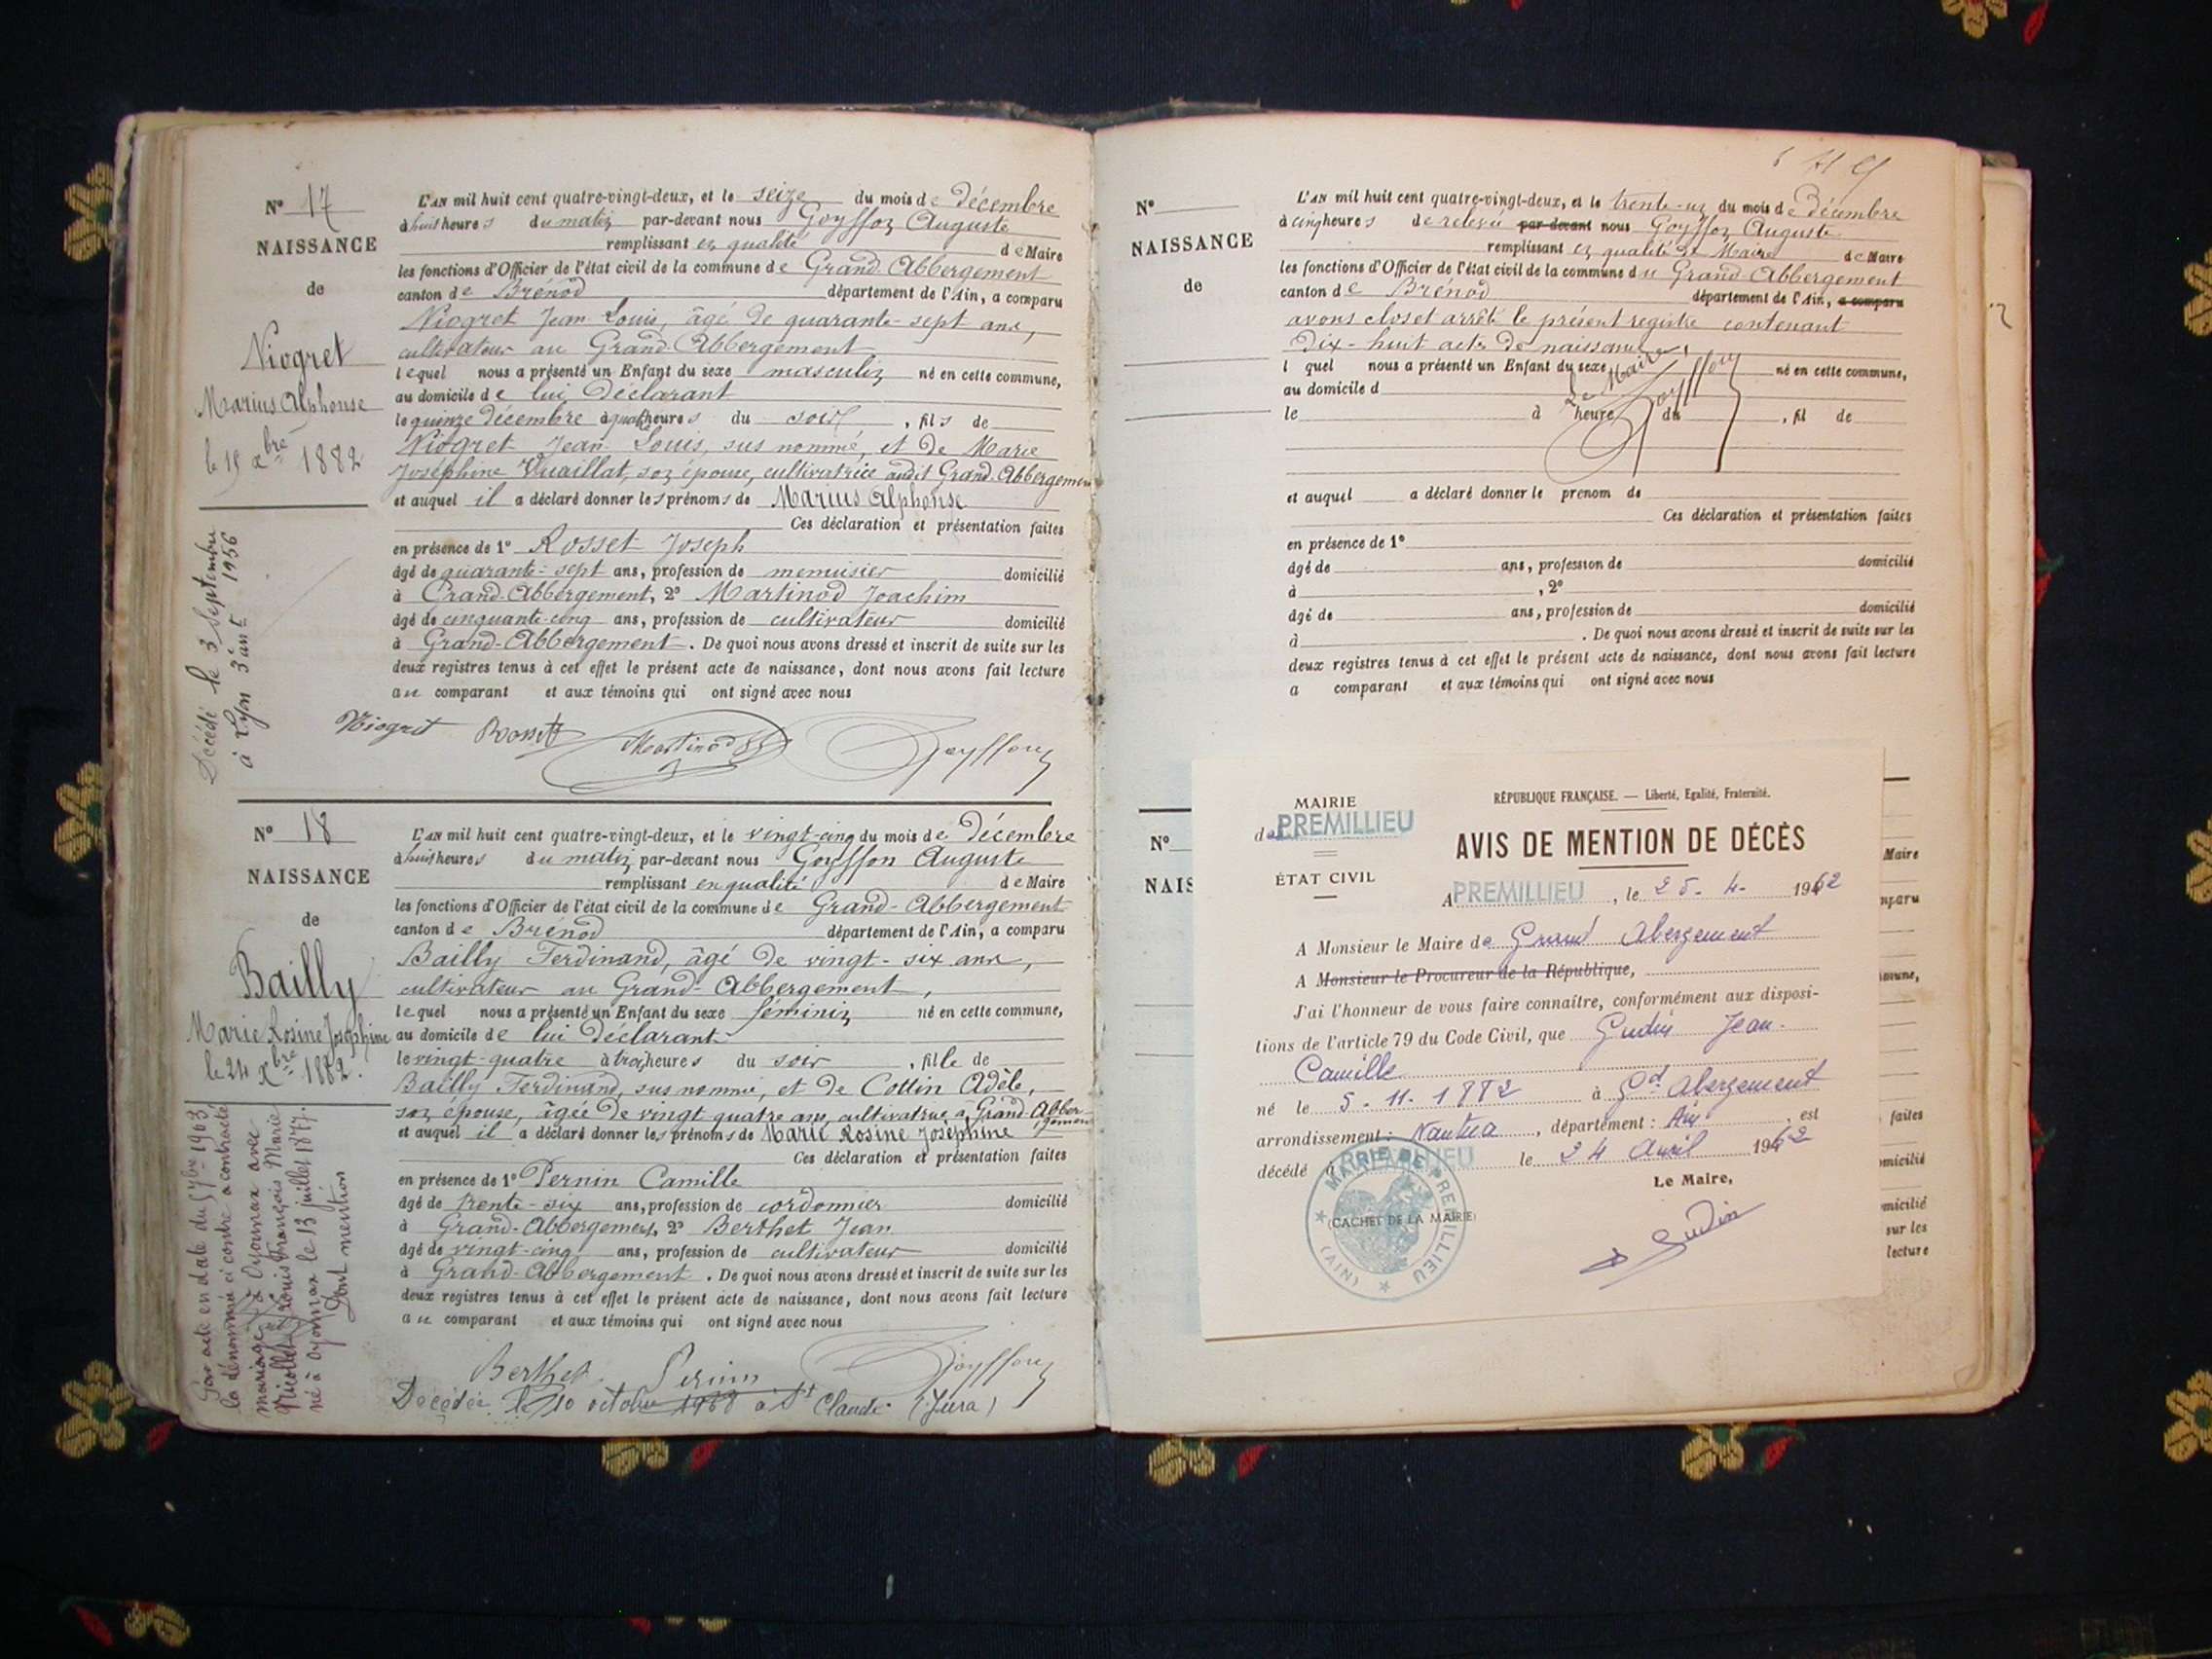 N° 17
NAISSANCE
de
Niogret
Marius Alphonse
le 15 xbre 1882
Décédé le 3 Septembre
à Lyon 3e arrt 1956
L'AN mil huit cent quatre-vingt-deux, et le seize du mois de décembre
à huit heures du matin par-devant nous Goyffon Auguste
remplissant en qualité de Maire
les fonctions d'Officier de l'état civil de la commune de Grand-Abbergement
canton de Brénod département de l'Ain, a comparu
Niogret Jean Louis, âgé de quarante-sept ans,
cultivateur au Grand-Abbergement
lequel nous a présenté un Enfant du sexe masculin né en cette commune,
au domicile de lui déclarant
le quinze décembre à quatre heures du soir, fils de
Niogret Jean Louis, sus nommé, et de Marie
Joséphine Vuaillat, son épouse, cultivatrice audit Grand-Abbergement
et auquel il a déclaré donner les prénoms de Marius Alphonse
Ces déclaration et présentation faites
en présence de 1° Rosset Joseph
âgé de quarante-sept ans, profession de menuisier domicilié
à Grand-Abbergement, 2° Martinod Joachim
âgé de cinquante-cinq ans, profession de cultivateur domicilié
à Grand-Abbergement. De quoi nous avons dressé et inscrit de suite sur les
deux registres tenus à cet effet le présent acte de naissance, dont nous avons fait lecture
au comparant et aux témoins qui ont signé avec nous
Niogret Rosset Martinod Goyffon
N° 18
NAISSANCE
de
Bailly
Marie Rosine Joséphine
le 24 xbre 1882.
Par acte en date du 5 7bre 1903
la dénommée ci contre a contracté
mariage à Oyonnax avec
Nicollet Louis François Marie
né à Oyonnax le 13 juillet 1877.
Dont mention
L'AN mil huit cent quatre-vingt-deux, et le vingt-cinq du mois de Décembre
à huit heures du matin par-devant nous Goyffon Auguste
remplissant en qualité de Maire
les fonctions d'Officier de l'état civil de la commune de Grand-Abbergement
canton de Brénod département de l'Ain, a comparu
Bailly Ferdinand, âgé de vingt-six ans,
cultivateur au Grand-Abbergement,
lequel nous a présenté un Enfant du sexe féminin né en cette commune,
au domicile de lui déclarant
le vingt-quatre à trois heures du soir, fille de
Bailly Ferdinand, sus nommé, et de Cottin Adèle,
son épouse, âgée de vingt quatre ans, cultivatrice à Grand-Abbergement
et auquel il a déclaré donner les prénoms de Marie Rosine Joséphine
Ces déclaration et présentation faites
en présence de 1° Pernin Camille
âgé de trente-six ans, profession de cordonnier domicilié
à Grand-Abbergement, 2° Berthet Jean
âgé de vingt-cinq ans, profession de cultivateur domicilié
à Grand-Abbergement. De quoi nous avons dressé et inscrit de suite sur les
deux registres tenus à cet effet le présent acte de naissance, dont nous avons fait lecture
au comparant et aux témoins qui ont signé avec nous
Berthet Pernin Goyffon
Décédée le 10 octobre 1968 à St Claude (Jura)
N°
NAISSANCE
de
L'AN mil huit cent quatre-vingt-deux, et le trente-un du mois de Décembre
à cinq heures de relevée par-devant nous Goyffon Auguste
remplissant en qualité de Maire de Maire
les fonctions d'Officier de l'état civil de la commune du Grand-Abbergement
canton de Brénod département de l'Ain, a comparu
avons clos et arrêté le présent registre contenant
Dix-huit actes de naissance.
l quel nous a présenté un Enfant du sexe né en cette commune,
Le Maire Goyffon
au domicile d
le à heure du , fil de
et auquel a déclaré donner le prénom de
Ces déclaration et présentation faites
en présence de 1°
âgé de ans, profession de domicilié
à , 2°
âgé de ans, profession de domicilié
à . De quoi nous avons dressé et inscrit de suite sur les
deux registres tenus à cet effet le présent acte de naissance, dont nous avons fait lecture
a comparant et aux témoins qui ont signé avec nous
N°
NAIS
Maire
mparu
mmune,
faites
micilié
micilié
sur les
lecture
MAIRIE
de PREMILLIEU
ÉTAT CIVIL
RÉPUBLIQUE FRANÇAISE. — Liberté, Egalité, Fraternité.
AVIS DE MENTION DE DÉCÈS
A PREMILLIEU, le 25-4-1962
A Monsieur le Maire de Grand Abergement
A Monsieur le Procureur de la République,
J'ai l'honneur de vous faire connaître, conformément aux disposi-
tions de l'article 79 du Code Civil, que Gudin Jean
Camille
né le 5.11.1882 à Gd Abergement
arrondissement: Nantua, département: Ain est
décédé à PREMILLIEU le 24 Avril 1962
Le Maire,
Gudin
MAIRIE DE PREMILLIEU
(CACHET DE LA MAIRIE)
(AIN)